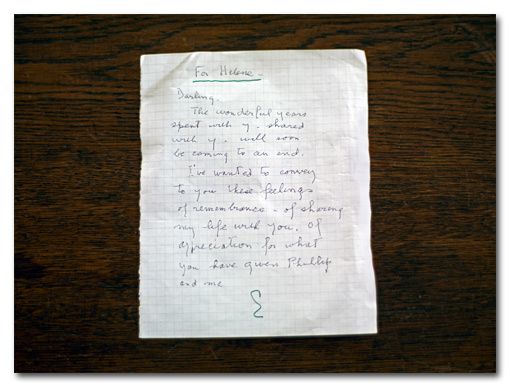 For Helene -
Darling,
The wonderful years
spent with y. shared
with y. will soon
be coming to an end.
I've wanted to convey
to you these feelings
of remembrance - of sharing
my life with you. Of
appreciation for what
you have given Phillip
and me